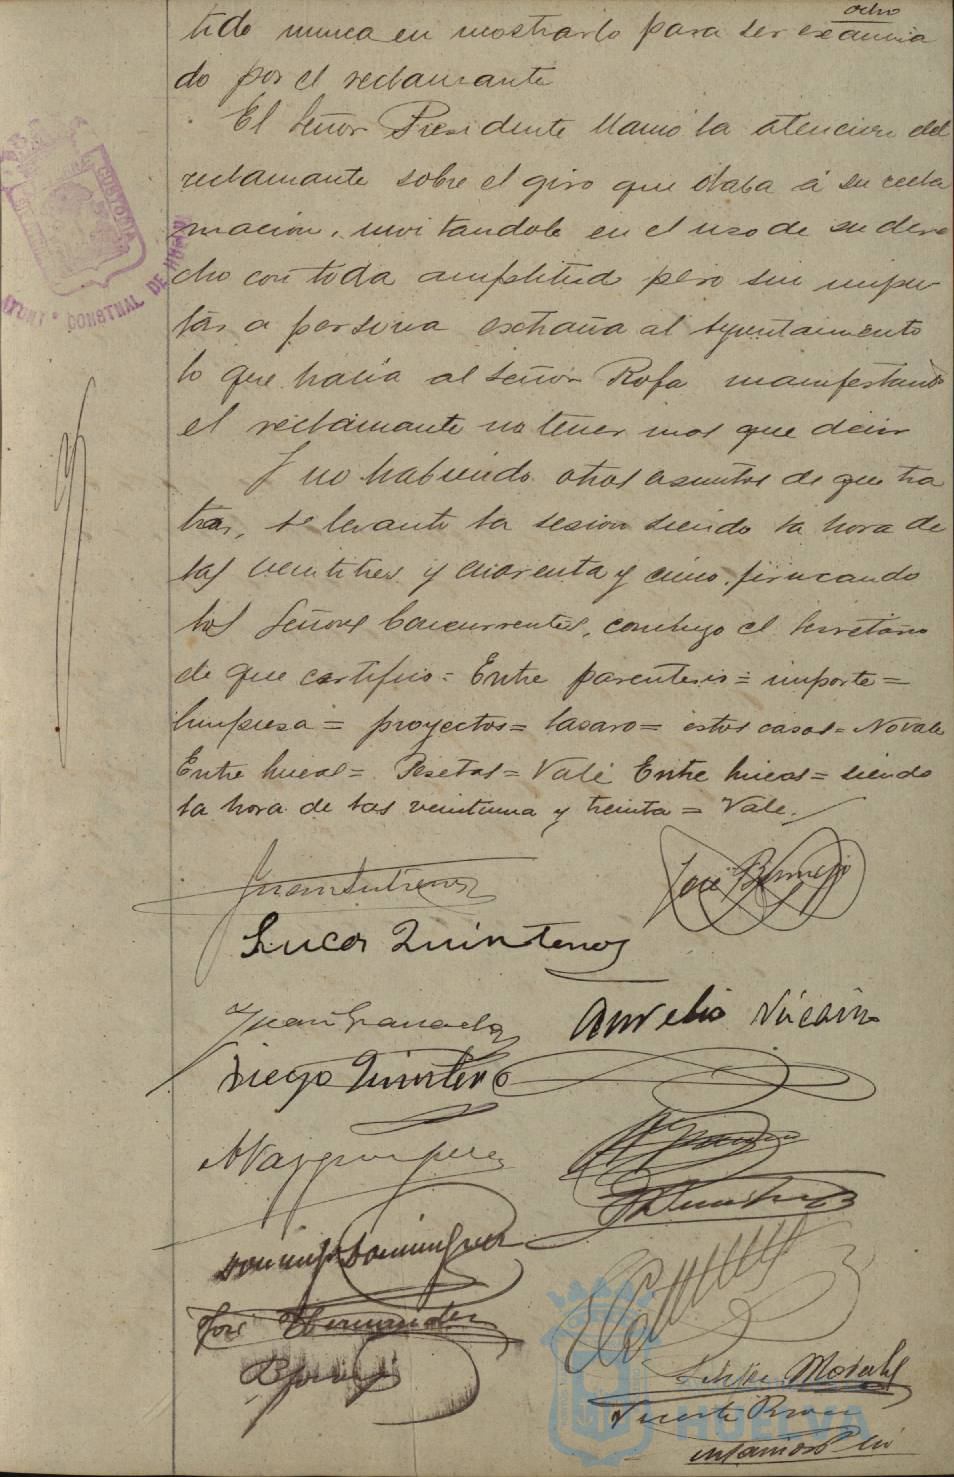 ocho
tido nunca en mostrarlo para ser examina
do por el reclamante
El Señor Presidente llamó la atencion del
reclamante sobre el giro que daba á su recla
macion, invitandole en el uso de su dere
cho con toda amplitud pero sin impu
tar a persona extraña al Ayuntamiento
lo que hacia al señor Rofa manifestando
el reclamante no tener mas que decir
Y no habiendo otros asuntos de que tra
tar, se levantó la sesion siendo la hora de
las veintitres y cuarenta y cinco, firmando
los Señores Concurrentes, conmigo el Secretario
de que certifico = Entre parentesis = importe =
limpieza = proyectos = tasaro = estos casos = No vale
Entre lineas = Pesetas = Vale Entre lineas = siendo
la hora de las veintiuna y treinta = Vale.
Juan Gutierrez
José Bermejo
Lucas Quinteros
Juan Granado
Aurelio Vizcaino
Diego Quintero
Domingo Dominguez
José Hernandez
Felipe Morales
Vicente
AYUNT.º CONSTNAL DE HUELVA
HUELVA